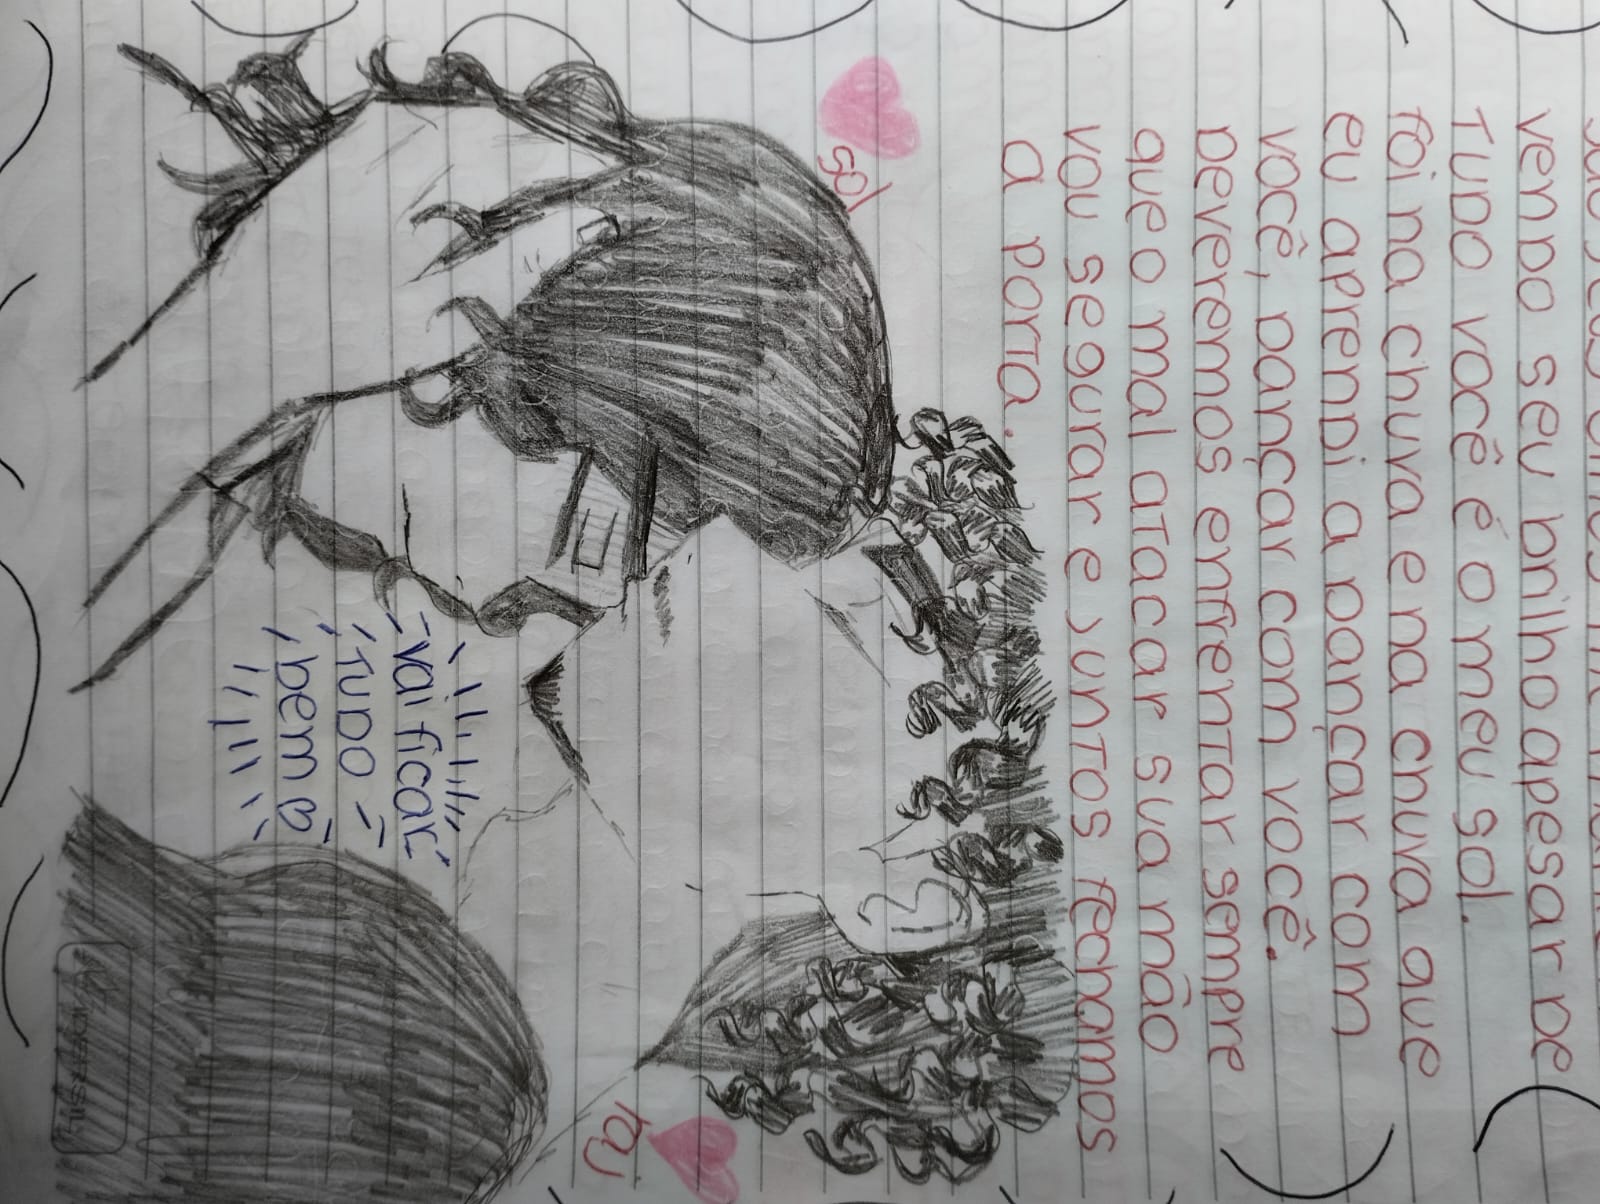 vendo seu brilho apesar de
Tudo você é o meu sol.
foi na chuva e na chuva que
eu aprendi a dançar com
você, dançar com você.
Deveremos enfrentar sempre
que o mal atacar sua mão
vou segurar e juntos fechamos
a porta.
sol
Vai ficar
Tudo
bem
ray